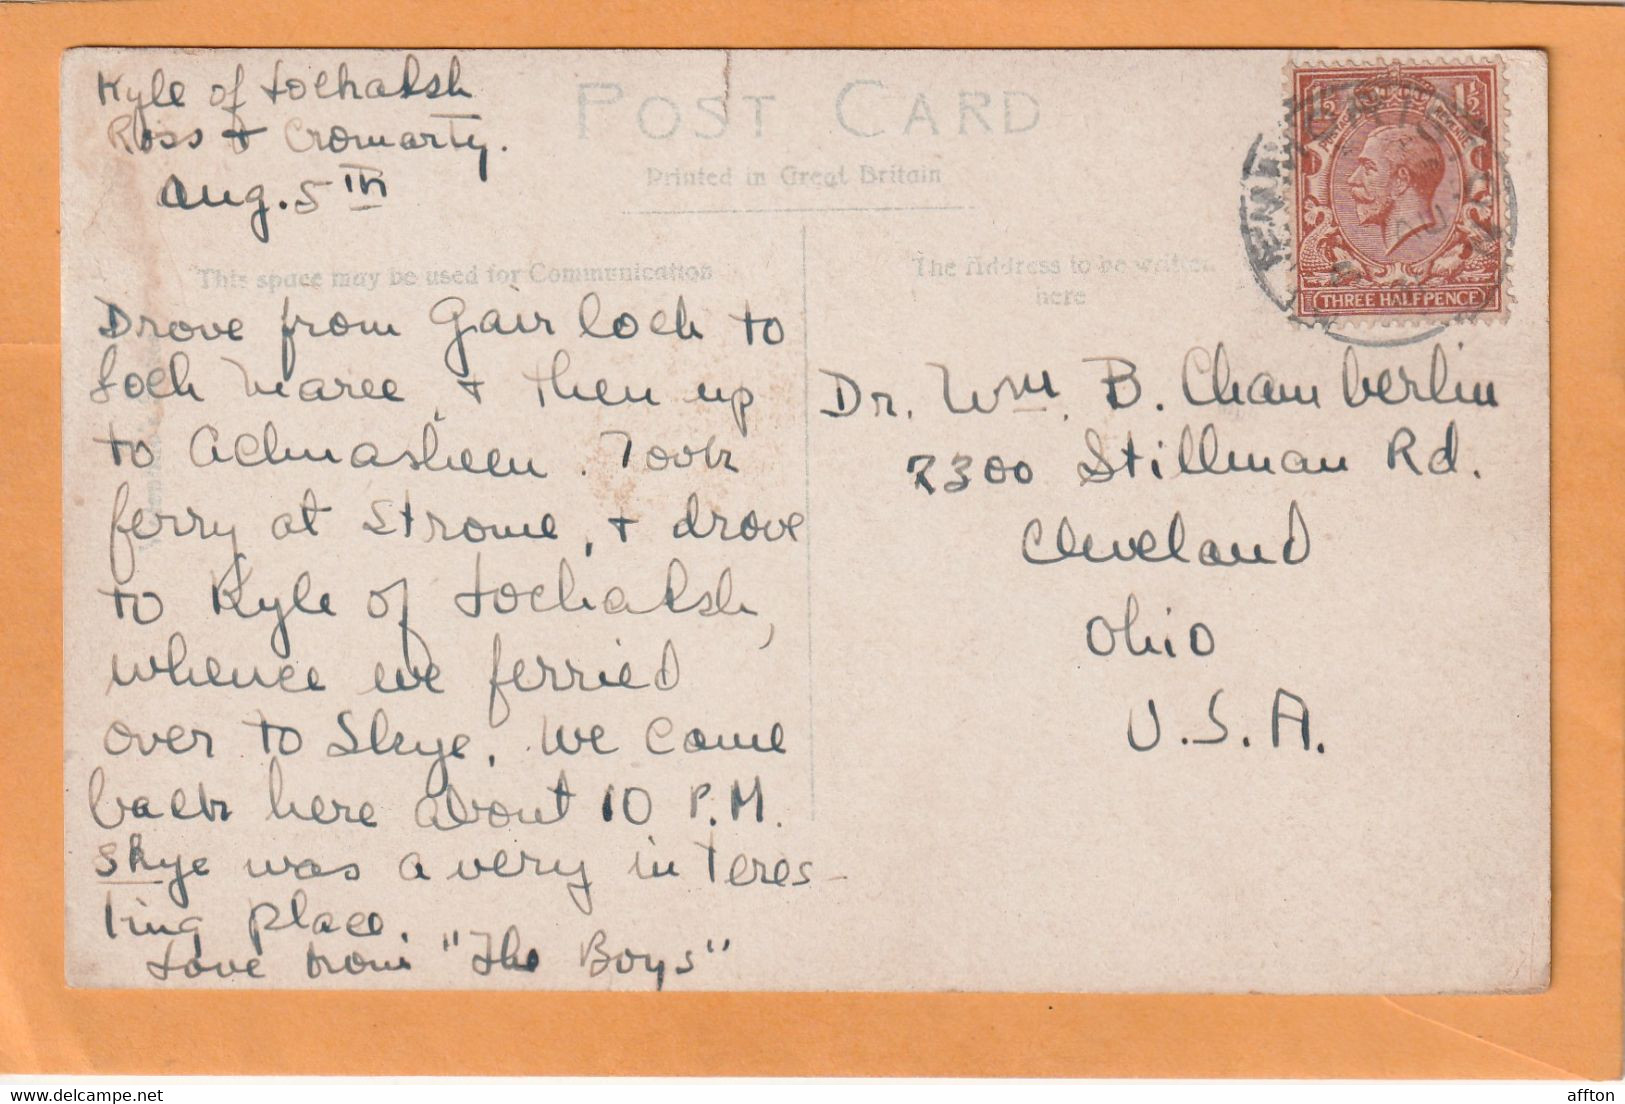 Kyle of Lochalsh
Ross & Cromarty.
Aug. 5th
POST CARD
Printed in Great Britain
This space may be used for Communication
The Address to be written
here
Drove from Gairloch to
Loch Maree, & then up
to Achnasheen. Took
ferry at Strome, & drove
to Kyle of Lochalsh,
whence we ferried
over to Skye. We came
back here about 10 P.M.
Skye was a very interes-
ting place.
Love from "The Boys"
1½ 1½
POSTAGE REVENUE
THREE HALFPENCE
Dr. Wm. B. Chamberlin
2300 Stillman Rd.
Cleveland
Ohio
U.S.A.
affton